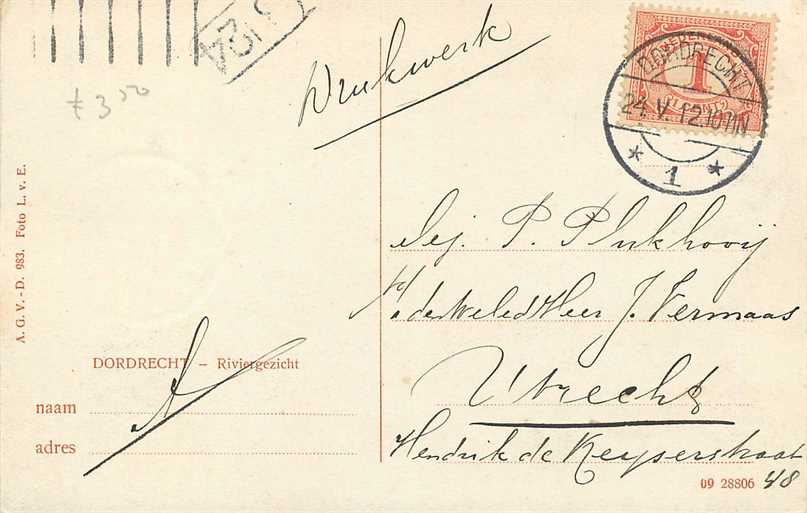 f 3 50
Drukwerk
NEDERLAND
1
CENT
DORDRECHT
24.V.12.10-11N
* 1 *
A. G. V. - D. 983. Foto L. v. E.
Mej. P. Plukhooy
p/a den Weled Heer J. Vermaas
Utrecht
Hendrik de Keyserstraat
48
DORDRECHT – Riviergezicht
naam
adres
A
09 28806